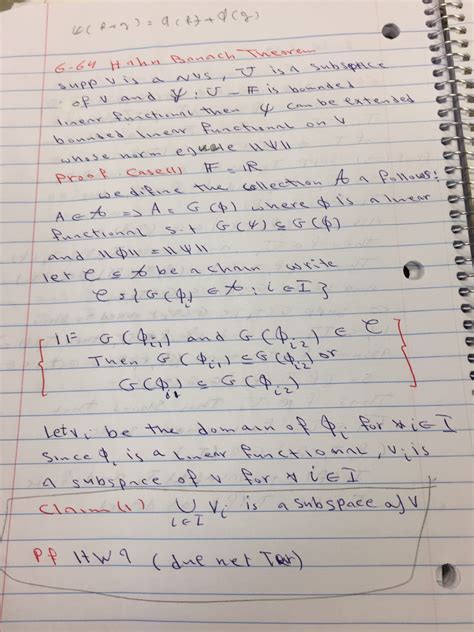 ψ(f+g) = φ(f) + φ(g)
6-64 Hahn Banach Theorem
supp V is a NVS, U is a subspace
of V and Ψ: U → F is bounded
linear functional then Ψ can be extended
bounded linear functional on V
whose norm equale ||Ψ||
Proof Case(1) F = R
we difine the collection A a follows:
A ∈ A ⇒ A = G(ϕ) where ϕ is a linear
functional s.t G(Ψ) ⊆ G(ϕ)
and ||ϕ|| = ||Ψ||
let C ⊆ A be a chain write
C = {G(ϕi) ∈ A : i ∈ I}
IF G(ϕi1) and G(ϕi2) ∈ C
Then G(ϕi1) ⊆ G(ϕi2) or
G(ϕi1) ⊆ G(ϕi2)
Let vi be the domain of ϕi for ∀ i ∈ I
Since ϕi is a linear functional, Vi is
a subspace of V for ∀ i ∈ I
Claim(1) ∪ Vi is a subspace of V
i∈I
Pf HW 9 (due net